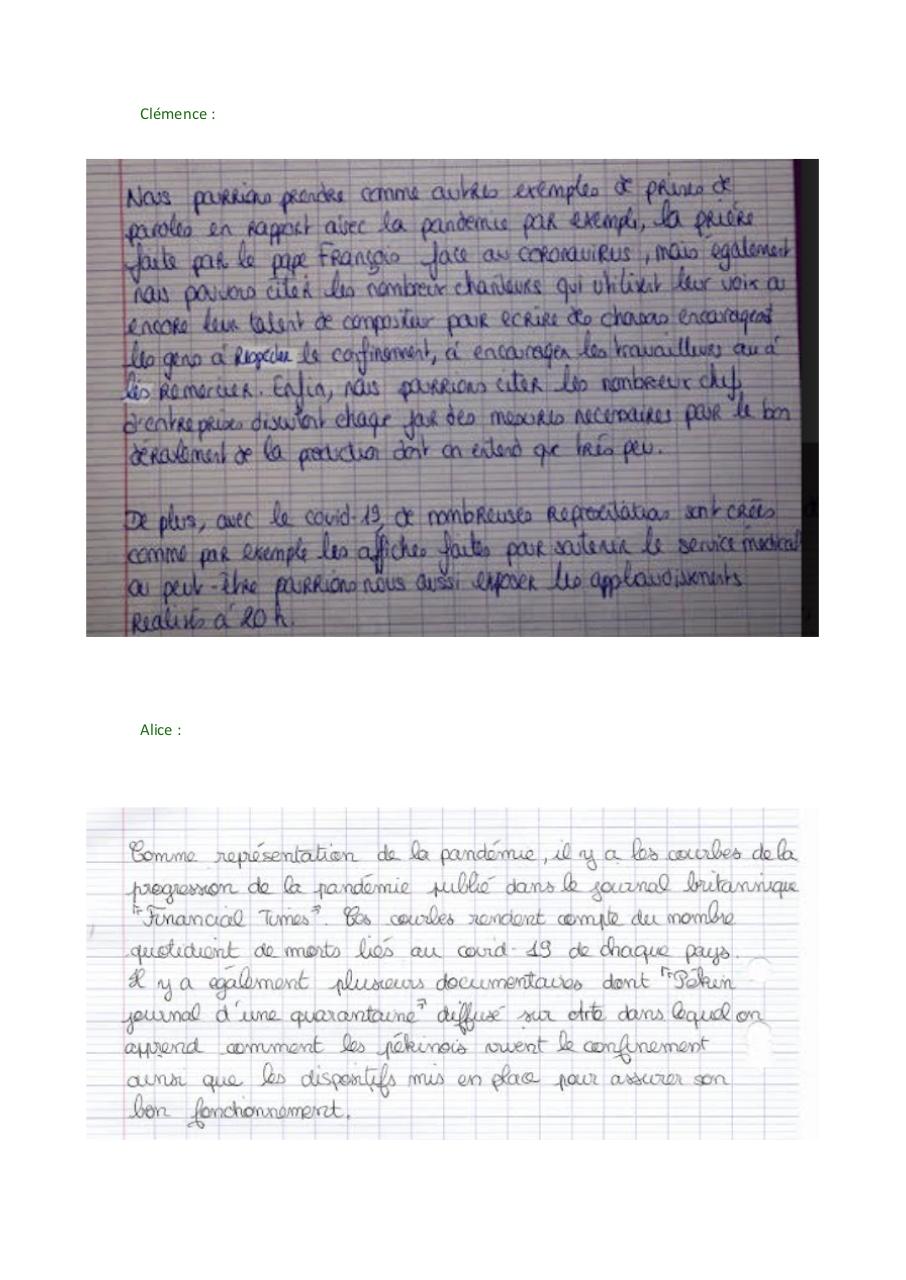 Clémence :
Nous pourrions prendre comme autres exemples de prises de
paroles en rapport avec la pandemie par exemple, la prière
faite par le pape François face au coronavirus, mais également
nous pouvons citer les nombreux chanteurs qui utilisent leur voix ou
encore leur talent de compositeur pour ecrire des chansons encourageant
les gens à respecter le confinement, à encourager les travailleurs ou à
les remercier. Enfin, nous pourrions citer les nombreux chefs
d'entreprises discutent chaque jour des mesures necessaires pour le bon
déroulement de la production dont on entend que très peu.
De plus, avec le covid-19, de nombreuses représentations sont créés
comme par exemple les affiches faites pour soutenir le service médical
ou peut-être pourrions nous aussi exposer les applaudissements
réalisés à 20 h.
Alice :
Comme représentation de la pandémie, il y a les courbes de la
progression de la pandémie publié dans le journal britannique
"Financial Times". Ces courbes rendent compte du nombre
quotidient de morts liés au covid-19 de chaque pays.
Il y a également plusieurs documentaires dont "Pékin
journal d'une quarantaine" diffusé sur Arte dans lequel on
apprend comment les pékinois vivent le confinement
ainsi que les dispositifs mis en place pour assurer son
bon fonctionnement.